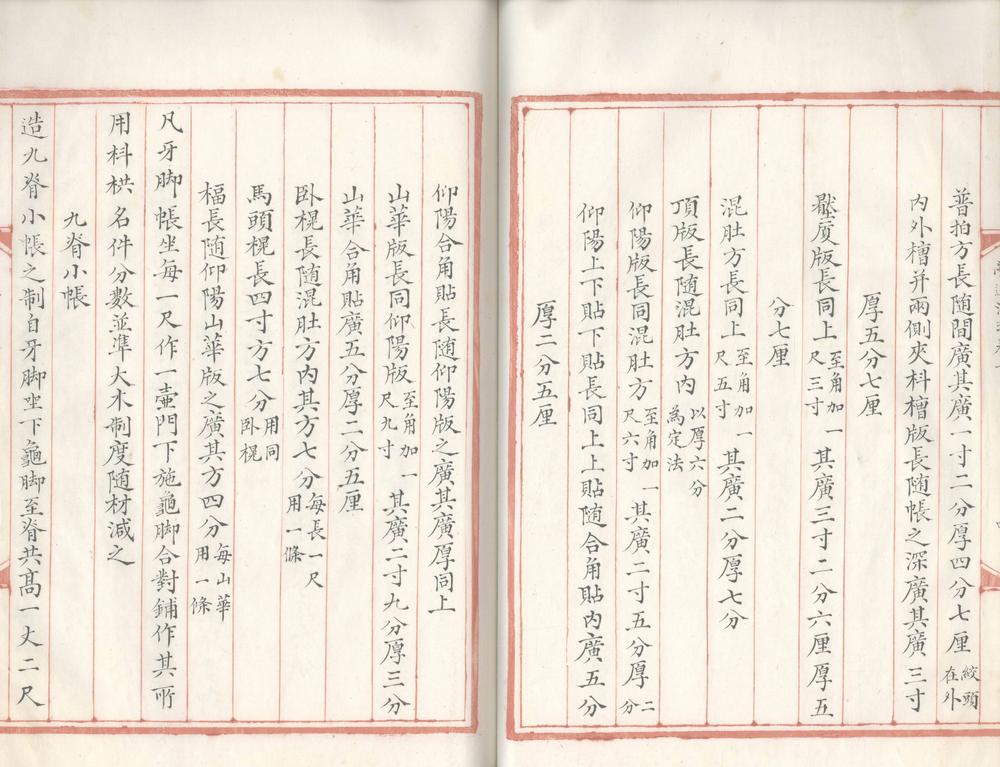 普拍方長随間廣其廣一寸二分厚四分七厘絞頭在外
内外槽并兩側夾枓槽版長随帳之深廣其廣三寸
厚五分七厘
壓厦版長同上至角加一尺三寸其廣三寸二分六厘厚五
分七厘
混肚方長同上至角加一尺五寸其廣二分厚七分
頂版長随混肚方内以厚六分為定法
仰陽版長同混肚方至角加一尺六寸其廣二寸五分厚二分
仰陽上下貼下貼長同上上貼随合角貼内廣五分
厚二分五厘
仰陽合角貼長随仰陽版之廣其廣厚同上
山華版長同仰陽版至角加一尺九寸其廣二寸九分厚三分
山華合角貼廣五分厚二分五厘
卧榥長随混肚方内其方七分每長一尺用一條
馬頭榥長四寸方七分用同卧榥
楅長随仰陽山華版之廣其方四分每山華用一條
凡牙脚帳坐每一尺作一壷門下施龜脚合對鋪作其所
用枓栱名件分數並準大木制度随材減之
九脊小帳
造九脊小帳之制自牙脚坐下龜脚至脊共髙一丈二尺